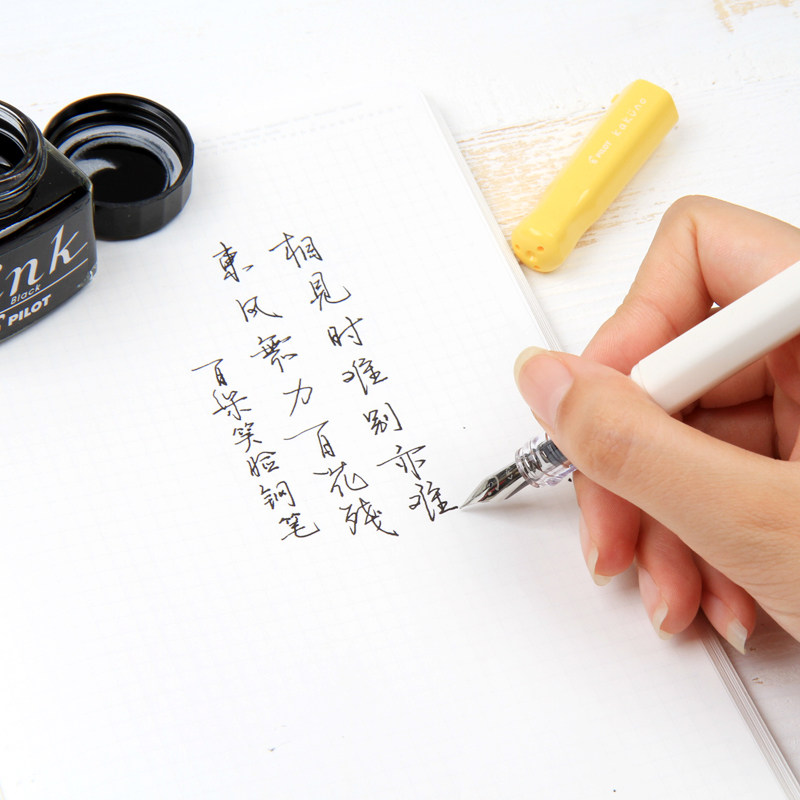 相見时难别亦难
東风無力百花残
百樂笑脸钢笔
ink
Black
PILOT
PILOT kakuno